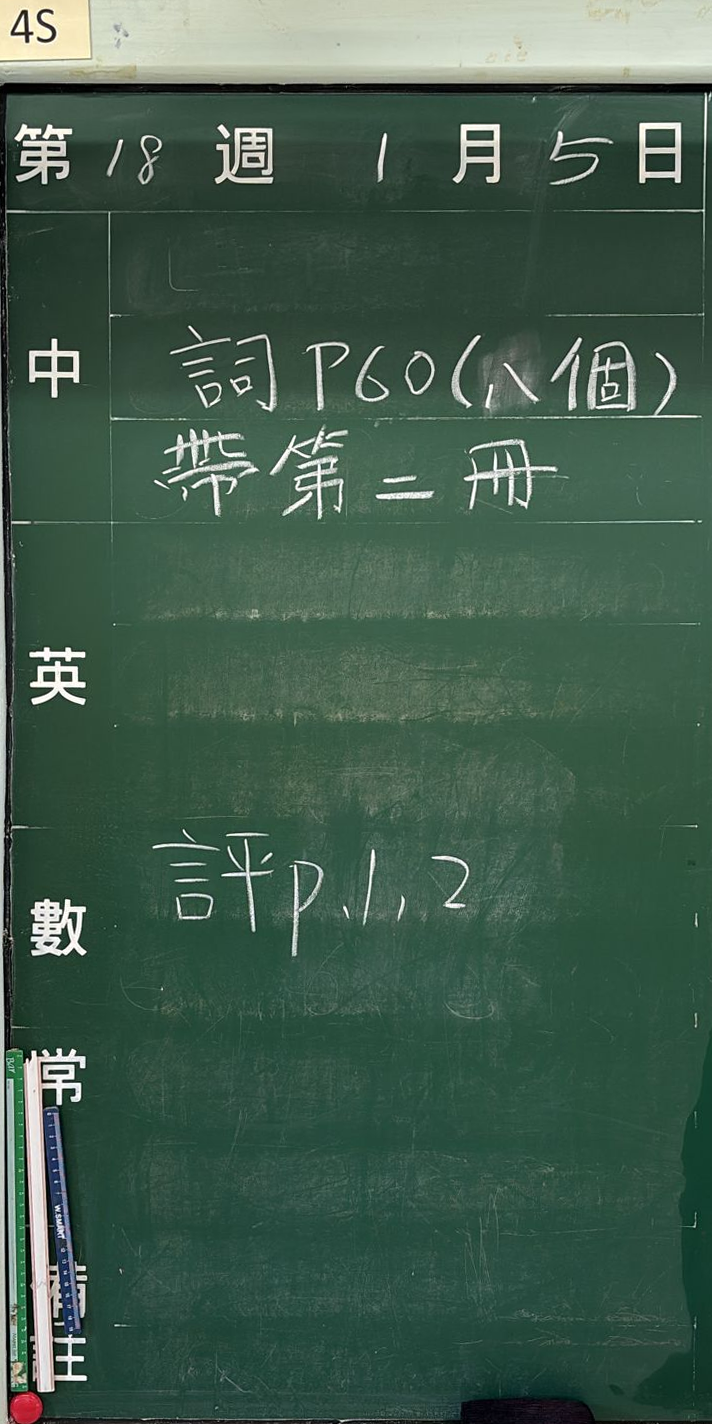 4S
第 18 週 1 月 5 日
中
詞 P60(八個)
帶第二冊
英
數
評p.1,2
常
備註
W.SMART